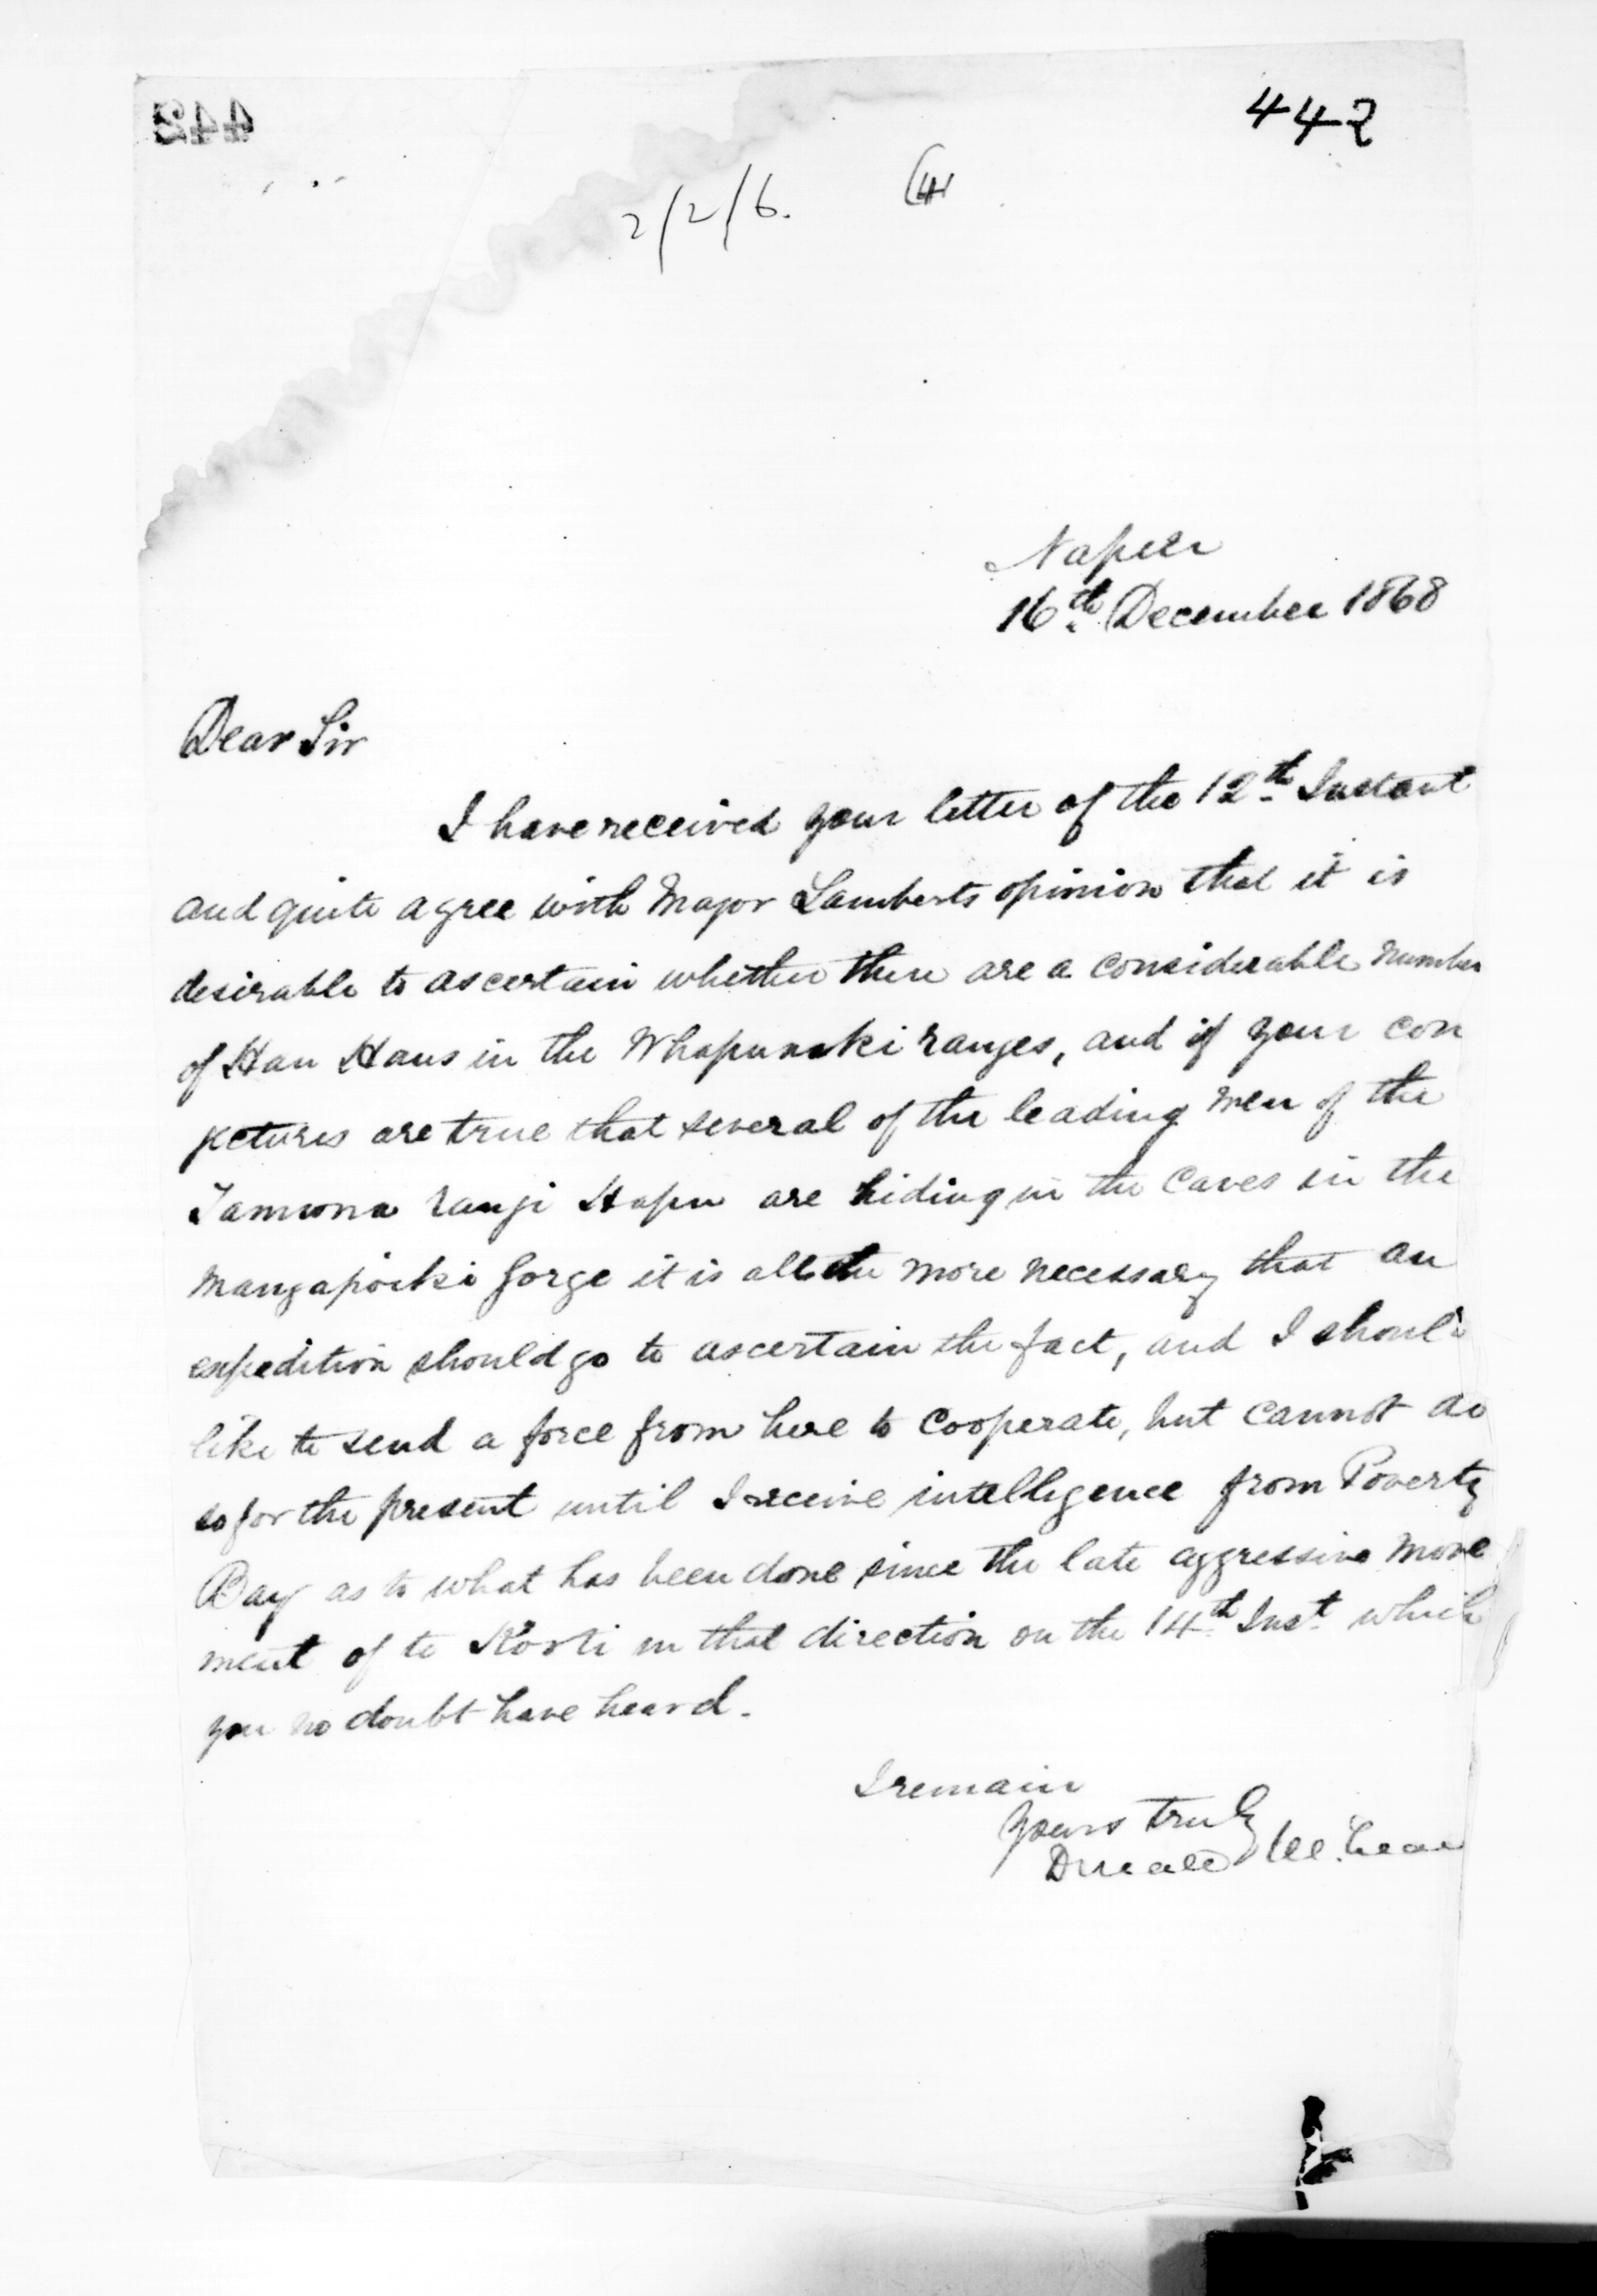 442
2/2/6.
Napier
16th December 1868
Dear Sir
I have received your letter of the 12th Instant
and quite agree with Major Lamberts opinion that it is
desirable to ascertain whether there are a considerable number
of Hau Haus in the Whapunaki ranges, and if your con
jectures are true that several of the leading men of the
rangi Hapu are hiding in the Caves in the
Gorge it is all the more necessary that an
expedition should go to ascertain the fact, and I should
like to send a force from here to cooperate, but cannot do
so for the present until I receive intelligence from Poverty
Bay as to what has been done since the late aggressive move
ment of te Kooti in that direction on the 14th Inst which
you no doubt have heard.
I remain
Yours truly
Donald McLean